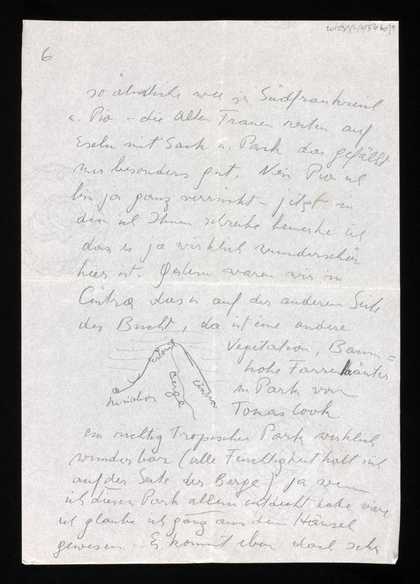 6
so ähnlich wie in Südfrankreich
u. Pio - die alten Frauen reiten auf
Eseln mit Sack u. Pack das gefällt
mir besonders gut. Nein Pio ich
bin ja ganz verrückt - jetzt in
dem ich Ihnen schreibe bemerke ich
das es ja wirklich wunderschön
hier ist. Gestern waren wir in
Cintra das is auf der anderen Seite
der Bucht, da ist eine andere
Vegetation, Baum=
hohe Farrenkräuter
im Park von
Tomas Cook
Estoril
Berge
Cintra
ein richtig Tropischer Park wirklich
wunderbar (alle Feuchtigkeit hält sich
auf der Seite der Berge) ja wenn
ich diesen Park allein entdeckt habe wäre
ich glaube ich ganz aus dem Häusel
gewesen. Es kommt aber doch sehr